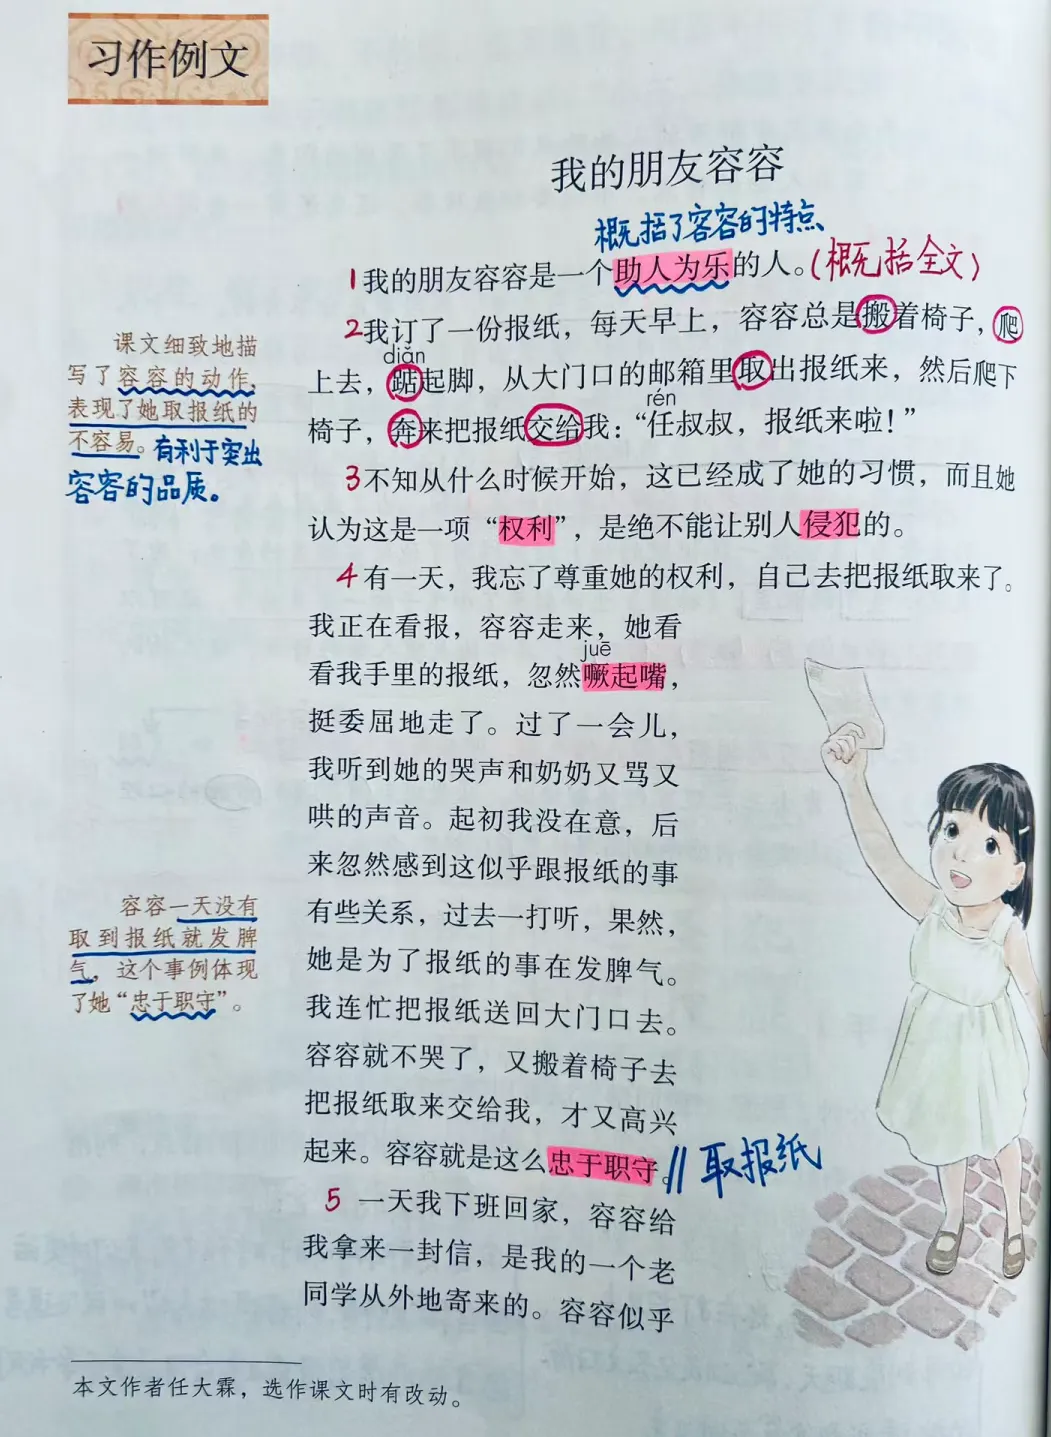 习作例文
我的朋友容容
概括了容容的特点
1 我的朋友容容是一个助人为乐的人。(概括全文)
2 我订了一份报纸，每天早上，容容总是搬着椅子，爬
diǎn
上去，踮起脚，从大门口的邮箱里取出报纸来，然后爬下
rén
椅子，奔来把报纸交给我：“任叔叔，报纸来啦！”
课文细致地描
写了容容的动作，
表现了她取报纸的
不容易。有利于突出
容容的品质。
3 不知从什么时候开始，这已经成了她的习惯，而且她
认为这是一项“权利”，是绝不能让别人侵犯的。
4 有一天，我忘了尊重她的权利，自己去把报纸取来了。
我正在看报，容容走来，她看
juē
看我手里的报纸，忽然噘起嘴，
挺委屈地走了。过了一会儿，
我听到她的哭声和奶奶又骂又
哄的声音。起初我没在意，后
来忽然感到这似乎跟报纸的事
有些关系，过去一打听，果然，
她是为了报纸的事在发脾气。
我连忙把报纸送回大门口去。
容容就不哭了，又搬着椅子去
把报纸取来交给我，才又高兴
起来。容容就是这么忠于职守。// 取报纸
容容一天没有
取到报纸就发脾
气，这个事例体现
了她“忠于职守”。
5 一天我下班回家，容容给
我拿来一封信，是我的一个老
同学从外地寄来的。容容似乎
本文作者任大霖，选作课文时有改动。